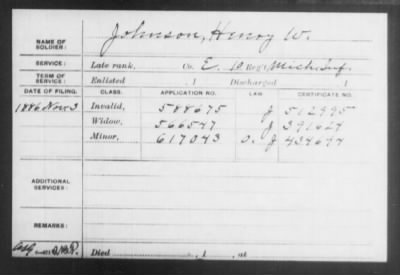 NAME OF SOLDIER: Johnson, Henry W.
SERVICE: Late rank, Co. E, 10 Reg't Mich. Inf.
TERM OF SERVICE: Enlisted , 1 Discharged , 1
DATE OF FILING. CLASS. APPLICATION NO. LAW. CERTIFICATE NO.
1886 Nov 3 Invalid, 588675 J 512995
Widow, 566547 J 391624
Minor, 617043 O. J 434694
ADDITIONAL SERVICES:
REMARKS:
Died , 1 , at